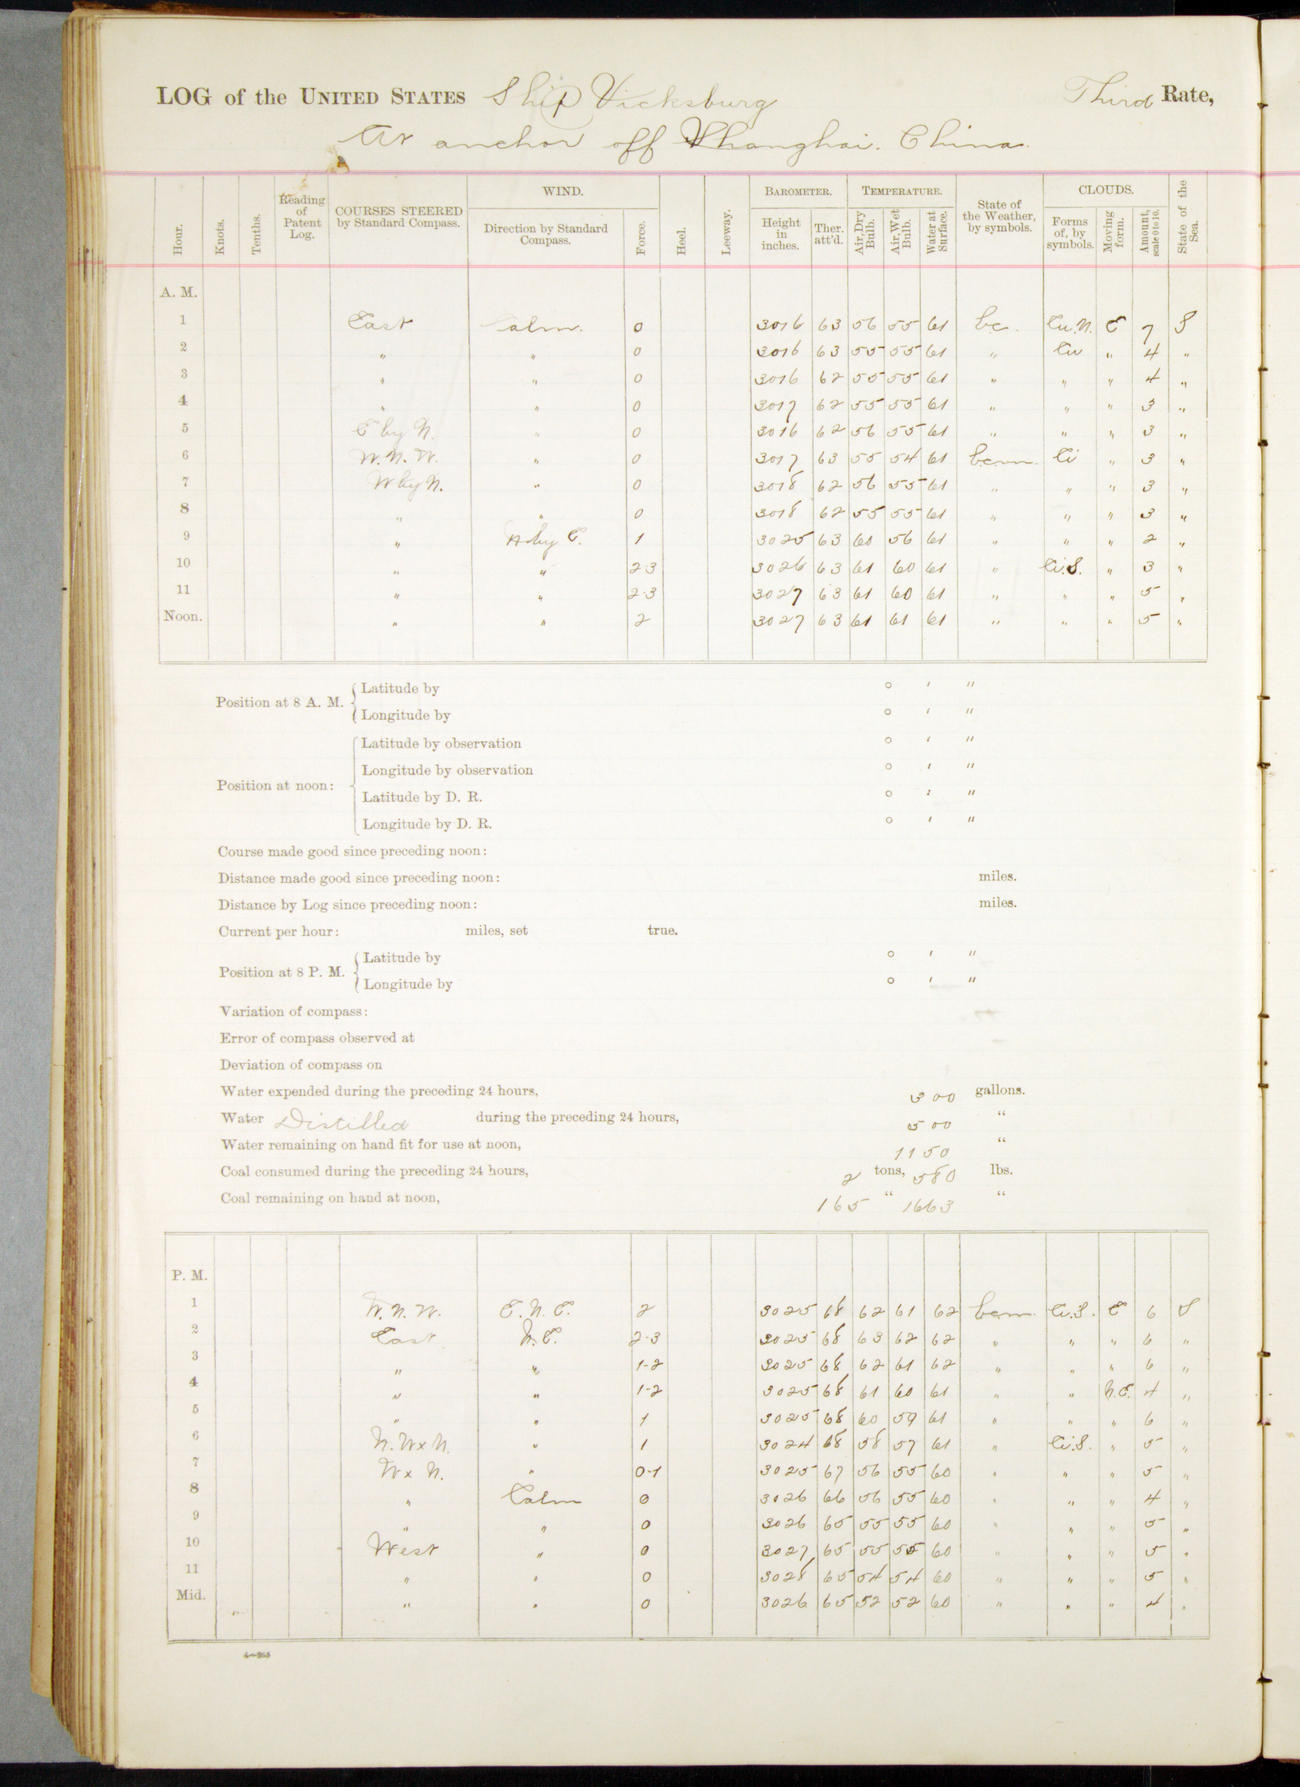 LOG of the UNITED STATES Ship Vicksburg Third Rate,
At anchor off Shanghai. China.
Hour. Knots. Tenths. Reading of Patent Log. COURSES STEERED by Standard Compass. WIND. Direction by Standard Compass. Force. Heel. Leeway. BAROMETER. Height in inches. Ther. att'd. TEMPERATURE. Air, Dry Bulb. Air, Wet Bulb. Water at Surface. State of the Weather, by symbols. CLOUDS. Forms of, by symbols. Moving form. Amount, scale 0 to 10. State of the Sea.
A. M.
1 East Calm. 0 3016 63 56 55 61 bc. Cu.N. E 7 S
2 " " 0 3016 63 55 55 61 " Cu " 4 "
3 " " 0 3016 62 55 55 61 " " " 4 "
4 " " 0 3017 62 55 55 61 " " " 3 "
5 E by N. " 0 3016 62 56 55 61 " " " 3 "
6 W.N.W. " 0 3017 63 55 54 61 bcm. Ci " 3 "
7 W by N. " 0 3018 62 56 55 61 " " " 3 "
8 " " 0 3018 62 55 55 61 " " " 3 "
9 " N by E. 1 3025 63 60 56 61 " " " 2 "
10 " " 2-3 3026 63 61 60 61 " Ci.S. " 3 "
11 " " 2-3 3027 63 61 60 61 " " " 5 "
Noon. " " 2 3027 63 61 61 61 " " " 5 "
Position at 8 A. M. Latitude by ° ' "
Longitude by ° ' "
Position at noon: Latitude by observation ° ' "
Longitude by observation ° ' "
Latitude by D. R. ° ' "
Longitude by D. R. ° ' "
Course made good since preceding noon:
Distance made good since preceding noon: miles.
Distance by Log since preceding noon: miles.
Current per hour: miles, set true.
Position at 8 P. M. Latitude by ° ' "
Longitude by ° ' "
Variation of compass:
Error of compass observed at
Deviation of compass on
Water expended during the preceding 24 hours, 300 gallons.
Water Distilled during the preceding 24 hours, 500 "
Water remaining on hand fit for use at noon, 1150 "
Coal consumed during the preceding 24 hours, 2 tons, 580 lbs.
Coal remaining on hand at noon, 165 " 1663 "
P. M.
1 W.N.W. E.N.E. 2 3025 68 62 61 62 bcm. Ci.S. E 6 S
2 East N.E. 2-3 3025 68 63 62 62 " " " 6 "
3 " " 1-2 3025 68 62 61 62 " " " 6 "
4 " " 1-2 3025 68 61 60 61 " " N.E. 4 "
5 " " 1 3025 68 60 59 61 " " " 6 "
6 N.WxN. " 1 3024 68 58 57 61 " Ci.S. " 5 "
7 WxN. " 0-1 3025 67 56 55 60 " " " 5 "
8 " Calm 0 3026 66 56 55 60 " " " 4 "
9 " " 0 3026 65 55 55 60 " " " 5 "
10 West " 0 3027 65 55 55 60 " " " 5 "
11 " " 0 3028 65 54 54 60 " " " 5 "
Mid. " " 0 3026 65 52 52 60 " " " 4 "